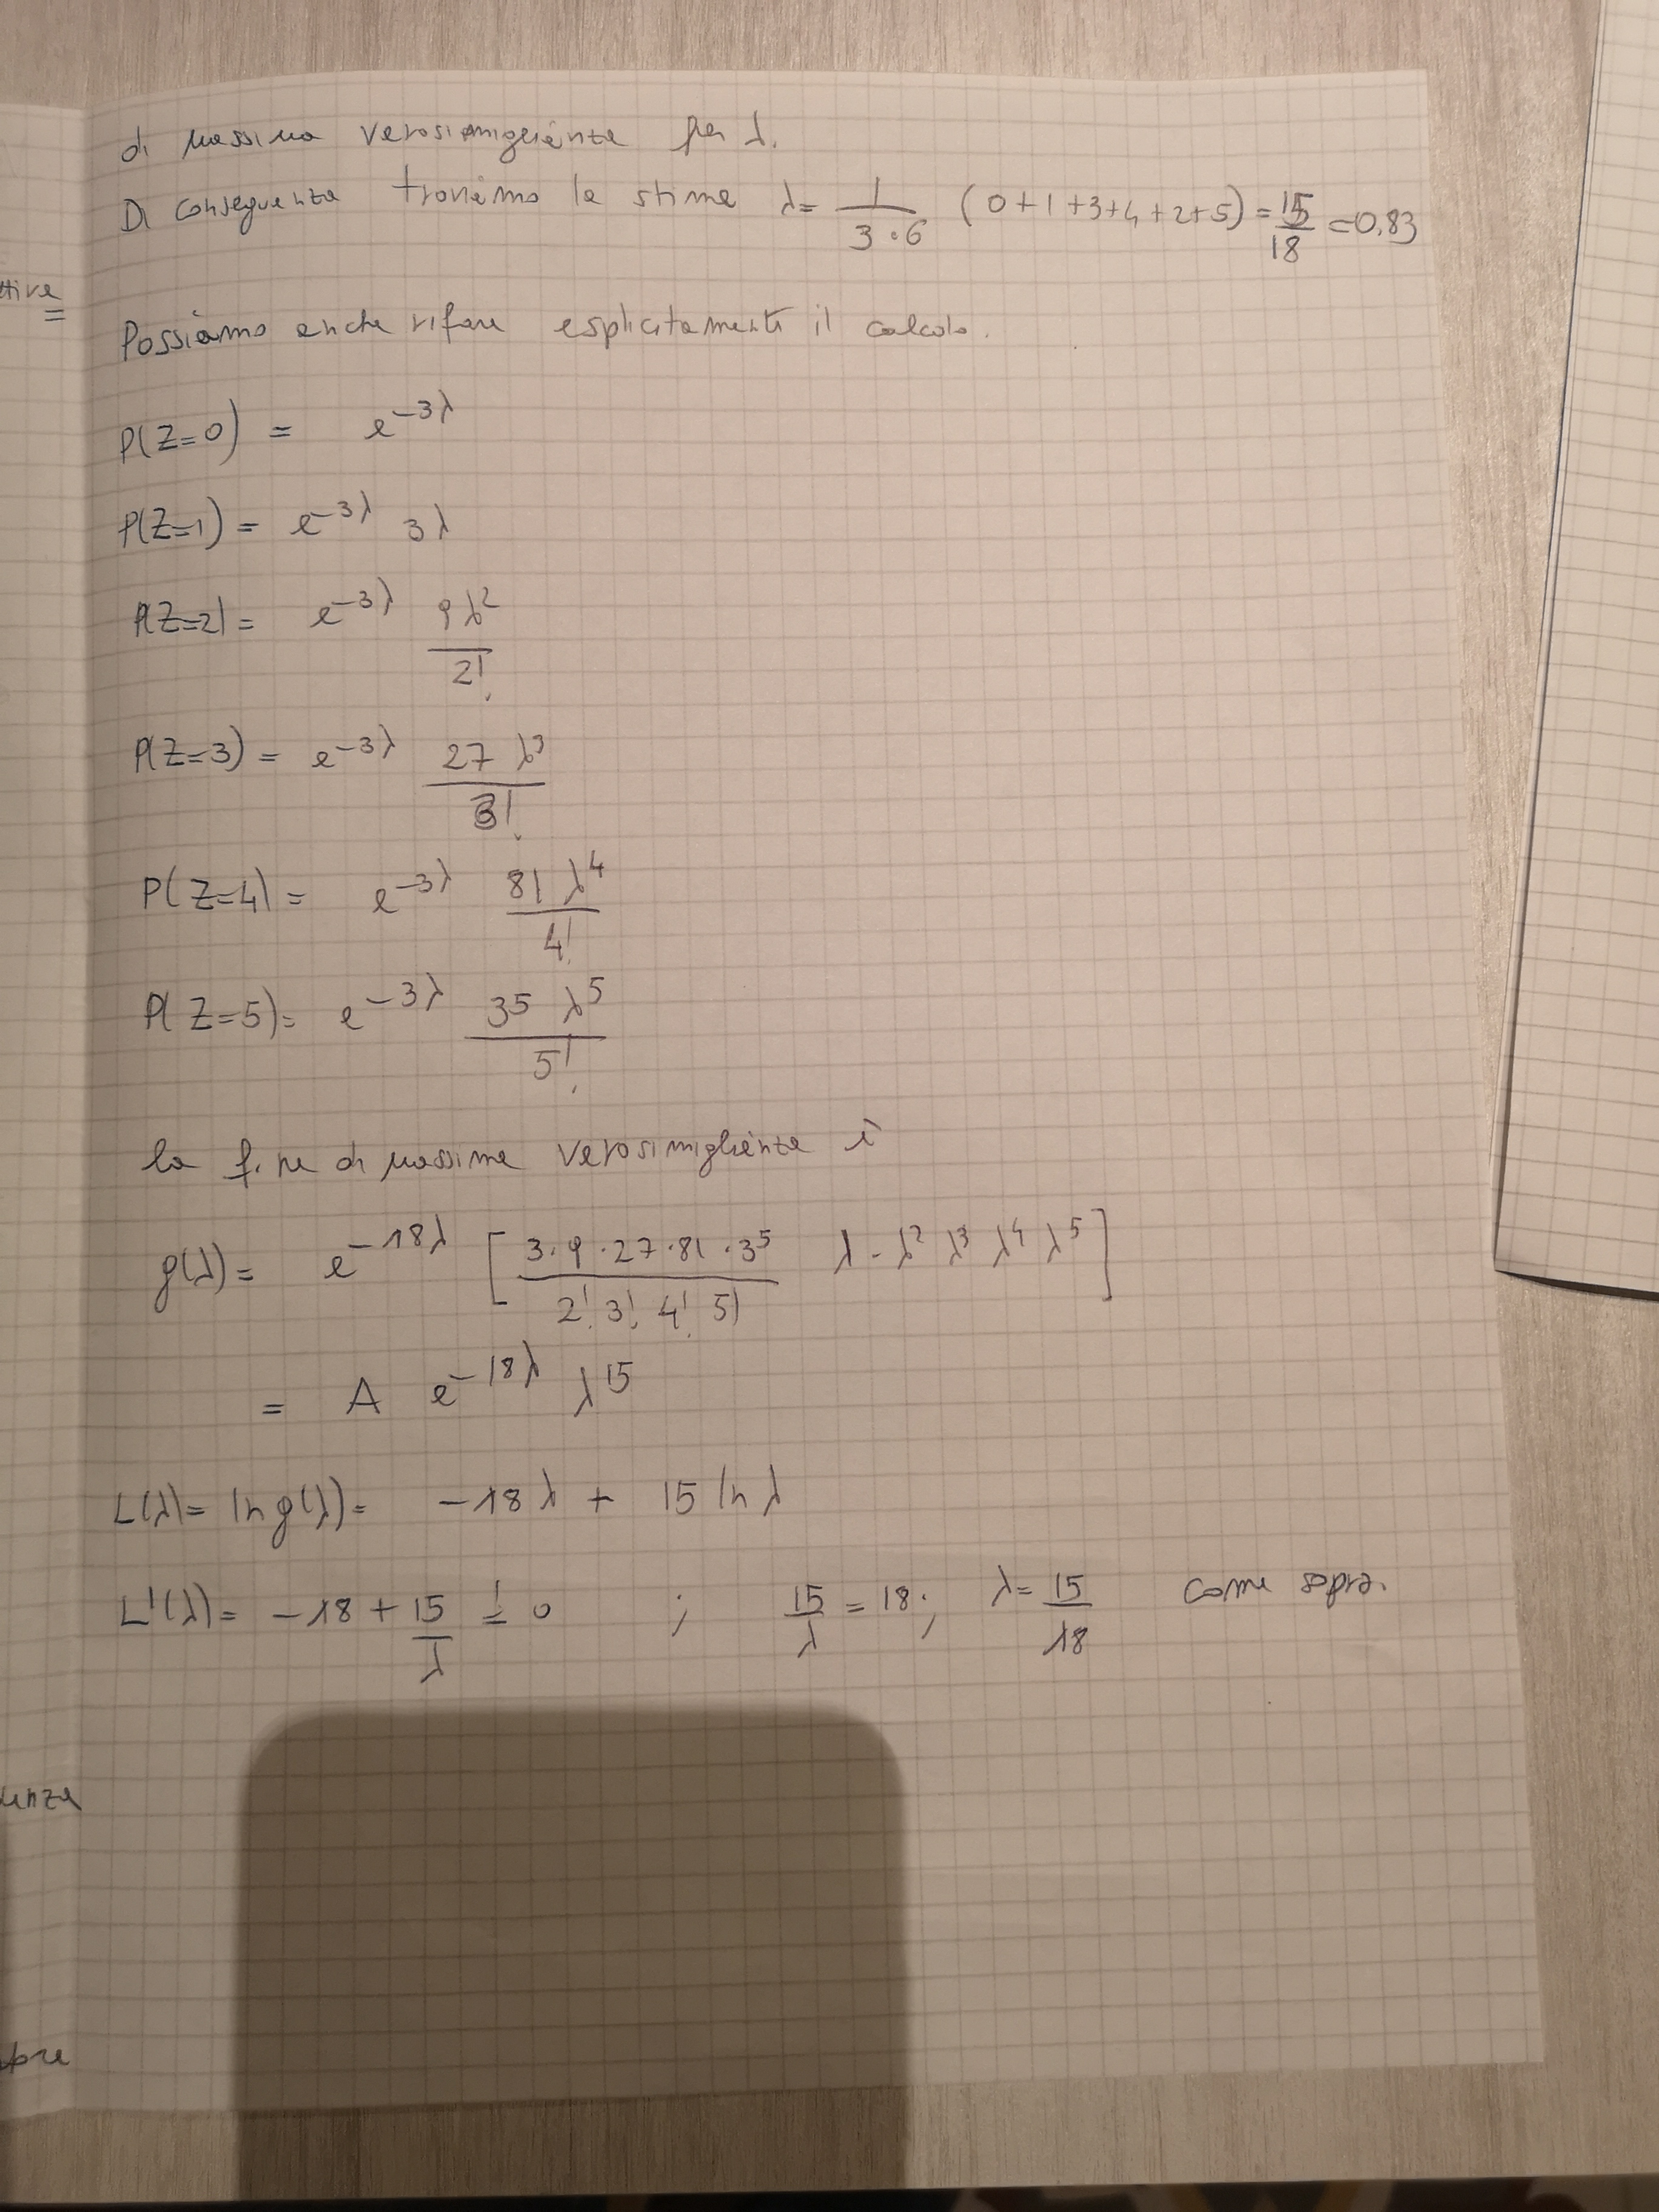 di massima verosimiglianza per λ.
Di conseguenza troviamo la stima λ = 1/(3·6) (0+1+3+4+2+5) = 15/18 = 0.83
Possiamo anche rifare esplicitamente il calcolo.
P(Z=0) = e^{-3λ}
P(Z=1) = e^{-3λ} 3λ
P(Z=2) = e^{-3λ} 9λ^2/2!
P(Z=3) = e^{-3λ} 27 λ^3/3!
P(Z=4) = e^{-3λ} 81 λ^4/4!
P(Z=5) = e^{-3λ} 3^5 λ^5/5!
la f.ne di massima verosimiglianza è
g(λ) = e^{-18λ} [3·9·27·81·3^5/(2! 3! 4! 5!) λ·λ^2 λ^3 λ^4 λ^5]
= A e^{-18λ} λ^15
L(λ) = ln g(λ) = -18λ + 15 ln λ
L'(λ) = -18 + 15/λ =! 0 ; 15/λ = 18; λ = 15/18 come sopra.
=